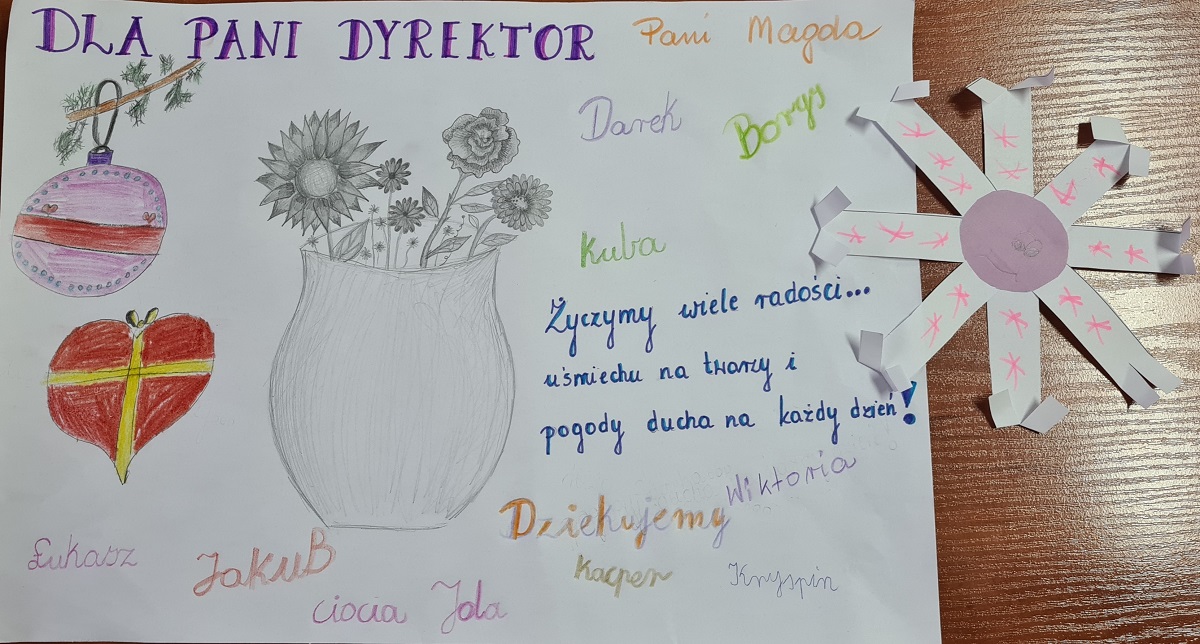 DLA PANI DYREKTOR
Pani Magda
Darek
Borys
Kuba
Życzymy wiele radości...
uśmiechu na twarzy i
pogody ducha na każdy dzień!
Wiktoria
Dziekujemy
Łukasz
JakuB
Kacper
Kryspin
ciocia Jola